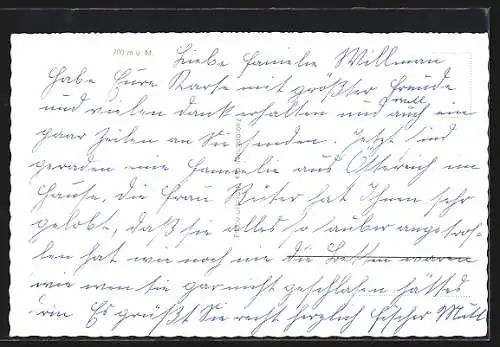 700 m ü. M.
Liebe Familie Willman
habe Eure Karte mit größter Freude
und vielen dank erhalten und will auch ein
paar Zeilen an Sie senden. Jetzt sind
geraden eine Familie aus Östereich im
Hause, die Frau hat Ihnen sehr
gelobt, daß sie alles so sauber angetrof-
fen hat wie noch nie die Betten waren
wie wen sie gar nicht geschlafen hätten
Es grüßt Sie recht herzlich Fischer